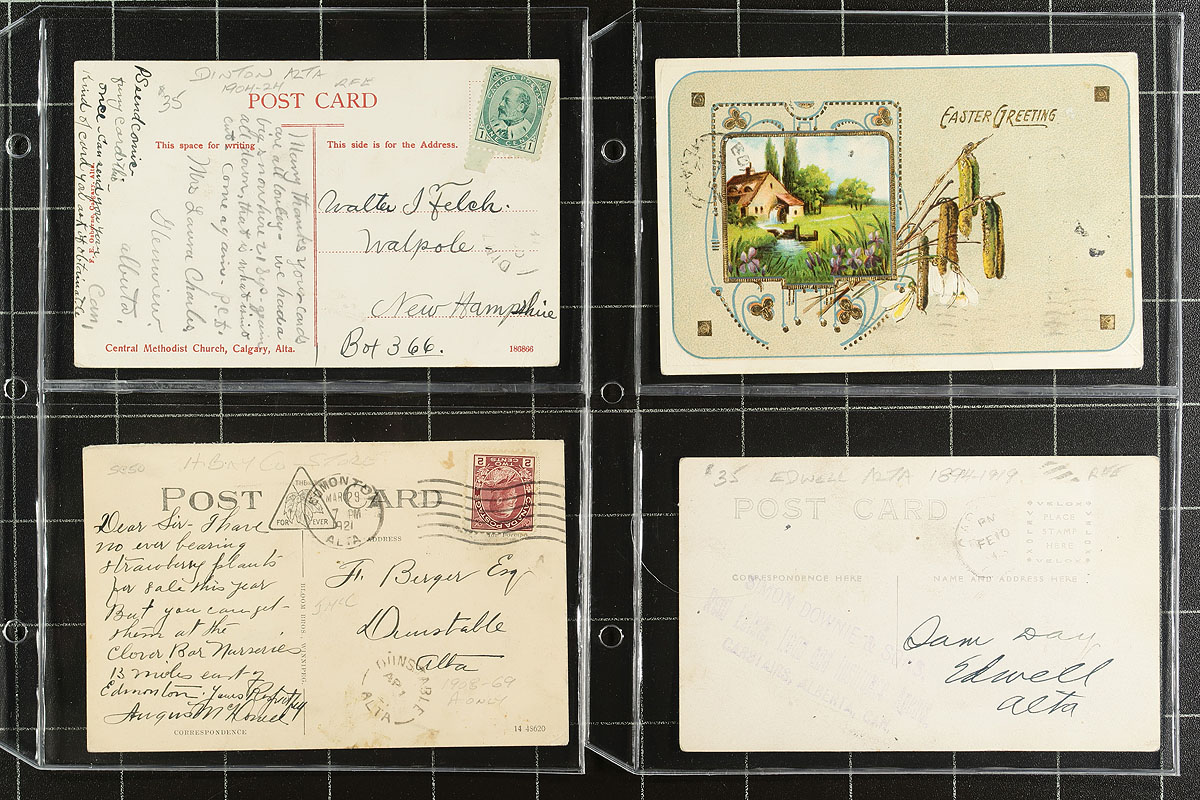 DINTON ALTA
1904-24
RFE
$35
POST CARD
This space for writing
This side is for the Address.
CANADA POSTAGE
ONE CENT
1 1
PS send comic
funny cards this
once I can send you any
kind of card you ask to obtain it
Many thanks your cards
are all lovely - we had a
big snow here 21
all down, that is what
Come again
Mrs Laura Charles
Gleniview
alberta,
Can,
Walter J Felch.
Walpole -
New Hampshire
Box 366.
Central Methodist Church, Calgary, Alta.
186866
EASTER GREETING
$250
H. Bay Co STORE
POST CARD
THE
FOR EVER
EDMONTON
MAR 29
7 PM
1921
ALTA
CANADA POSTAGE
TWO CENTS
2 2
ADDRESS
Dear Sir - I have
no ever bearing
strawberry plants
for sale this year
But you can get
them at the
Clover Bar Nurseries
13 miles east of
Edmonton Yours Respectfully
August McHomer
CORRESPONDENCE
BLOOM BROS., WINNIPEG.
F. Berger Esq
Dunstable
Alta
DUNSTABLE
AP 1
ALTA
1908-69
A ONLY
14 48620
$35
EDWELL ALTA 1894-1919
RFE
POST CARD
VELOX
PLACE
STAMP
HERE
VELOX
FE 10
CORRESPONDENCE HERE
NAME AND ADDRESS HERE
Sam Day
Edwell
Alta